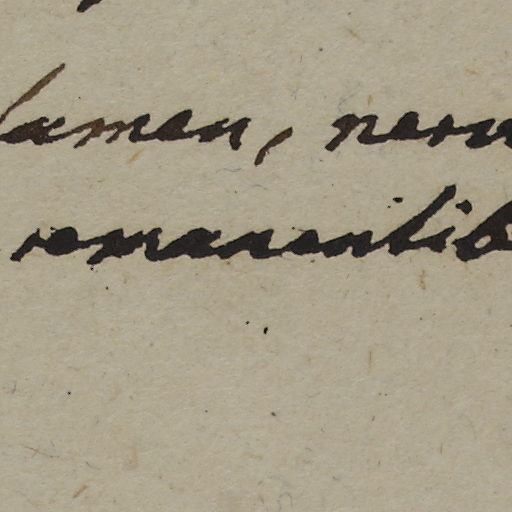 lamen, nerv
remanentib